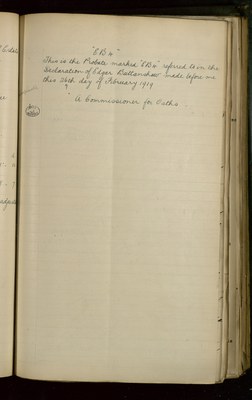 "E B 4"
This is the Probate marked "E B 4" referred to in the
Declaration of Edgar Battanshaw made before me
this 26th day of February 1919
A Commissioner for Oaths